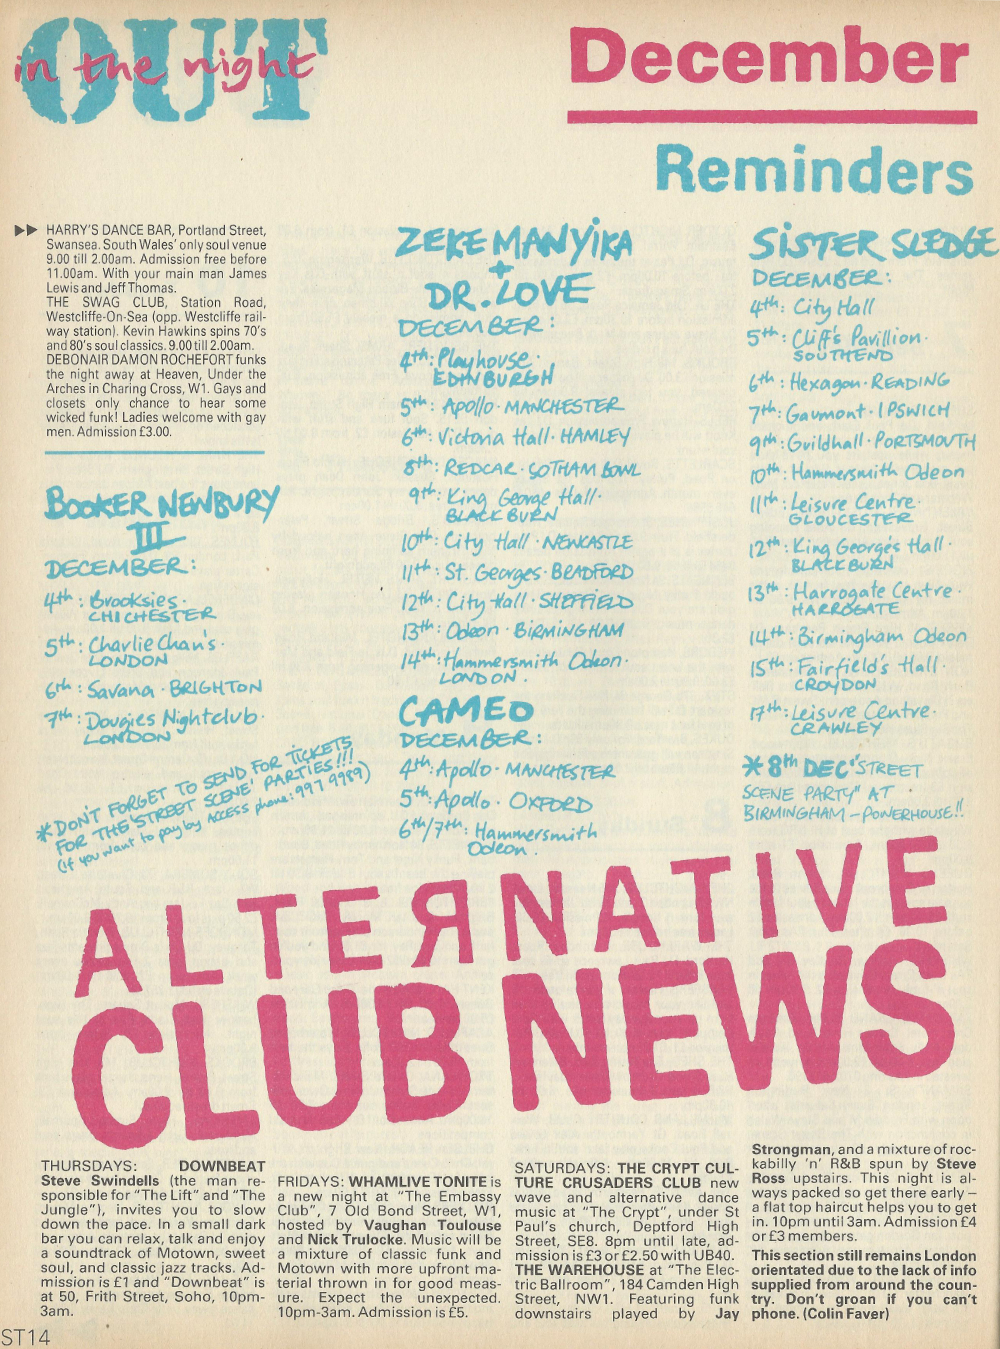 OUT
in the night
December
Reminders
HARRY'S DANCE BAR, Portland Street,
Swansea. South Wales' only soul venue
9.00 till 2.00am. Admission free before
11.00am. With your main man James
Lewis and Jeff Thomas.
THE SWAG CLUB, Station Road,
Westcliffe-On-Sea (opp. Westcliffe rail-
way station). Kevin Hawkins spins 70's
and 80's soul classics. 9.00 till 2.00am.
DEBONAIR DAMON ROCHEFORT funks
the night away at Heaven, Under the
Arches in Charing Cross, W1. Gays and
closets only chance to hear some
wicked funk! Ladies welcome with gay
men. Admission £3.00.
BOOKER NEWBURY
III
DECEMBER:
4th: Brooksies·
CHICHESTER
5th: Charlie Chan's·
LONDON
6th: Savana · BRIGHTON
7th: Dougies Nightclub·
LONDON
*DON'T FORGET TO SEND FOR TICKETS
FOR THE 'STREET SCENE' PARTIES!!!
(If you want to pay by ACCESS phone: 997 9989)
ZEKE MANYIKA
+
DR. LOVE
DECEMBER:
4th: Playhouse·
EDINBURGH
5th: Apollo· MANCHESTER
6th: Victoria Hall· HAMLEY
8th: REDCAR · GOTHAM BOWL
9th: King George Hall·
BLACKBURN
10th: City Hall · NEWCASTLE
11th: St. Georges· BRADFORD
12th: City Hall· SHEFFIELD
13th: Odeon · BIRMINGHAM
14th: Hammersmith Odeon·
LONDON.
CAMEO
DECEMBER:
4th: Apollo· MANCHESTER
5th: Apollo · OXFORD
6th/7th: Hammersmith
Odeon.
SISTER SLEDGE
DECEMBER:
4th: City Hall
5th: Cliff's Pavillion·
SOUTHEND
6th: Hexagon· READING
7th: Gaumont· IPSWICH
9th: Guildhall· PORTSMOUTH
10th: Hammersmith Odeon
11th: Leisure Centre·
GLOUCESTER
12th: King George's Hall·
BLACKBURN
13th: Harrogate Centre·
HARROGATE
14th: Birmingham Odeon
15th: Fairfield's Hall·
CROYDON
17th: Leisure Centre·
CRAWLEY
* 8th DEC "STREET
SCENE PARTY" AT
BIRMINGHAM - POWERHOUSE!!
ALTERNATIVE
CLUB NEWS
THURSDAYS: DOWNBEAT
Steve Swindells (the man re-
sponsible for "The Lift" and "The
Jungle"), invites you to slow
down the pace. In a small dark
bar you can relax, talk and enjoy
a soundtrack of Motown, sweet
soul, and classic jazz tracks. Ad-
mission is £1 and "Downbeat" is
at 50, Frith Street, Soho, 10pm-
3am.
FRIDAYS: WHAMLIVE TONITE is
a new night at "The Embassy
Club", 7 Old Bond Street, W1,
hosted by Vaughan Toulouse
and Nick Trulocke. Music will be
a mixture of classic funk and
Motown with more upfront ma-
terial thrown in for good meas-
ure. Expect the unexpected.
10pm-3am. Admission is £5.
SATURDAYS: THE CRYPT CUL-
TURE CRUSADERS CLUB new
wave and alternative dance
music at "The Crypt", under St
Paul's church, Deptford High
Street, SE8. 8pm until late, ad-
mission is £3 or £2.50 with UB40.
THE WAREHOUSE at "The Elec-
tric Ballroom", 184 Camden High
Street, NW1. Featuring funk
downstairs played by Jay
Strongman, and a mixture of roc-
kabilly 'n' R&B spun by Steve
Ross upstairs. This night is al-
ways packed so get there early –
a flat top haircut helps you to get
in. 10pm until 3am. Admission £4
or £3 members.
This section still remains London
orientated due to the lack of info
supplied from around the coun-
try. Don't groan if you can't
phone. (Colin Faver)
ST14